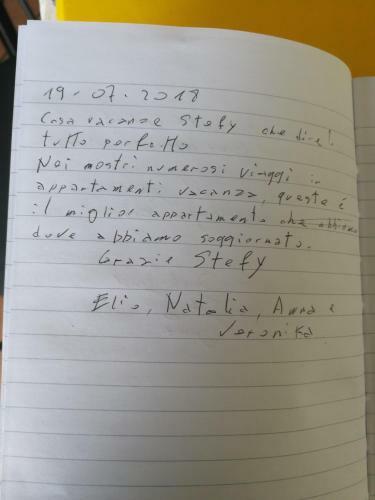 19-07.2018
Casa vacanze Stefy che dire!
tutto perfetto
Nei nostri numerosi viaggi in
appartamenti vacanza, questo è
il miglior appartamento che abbiamo
dove abbiamo soggiornato.
Grazie Stefy
Elio, Natalia, Anna e
Veronika